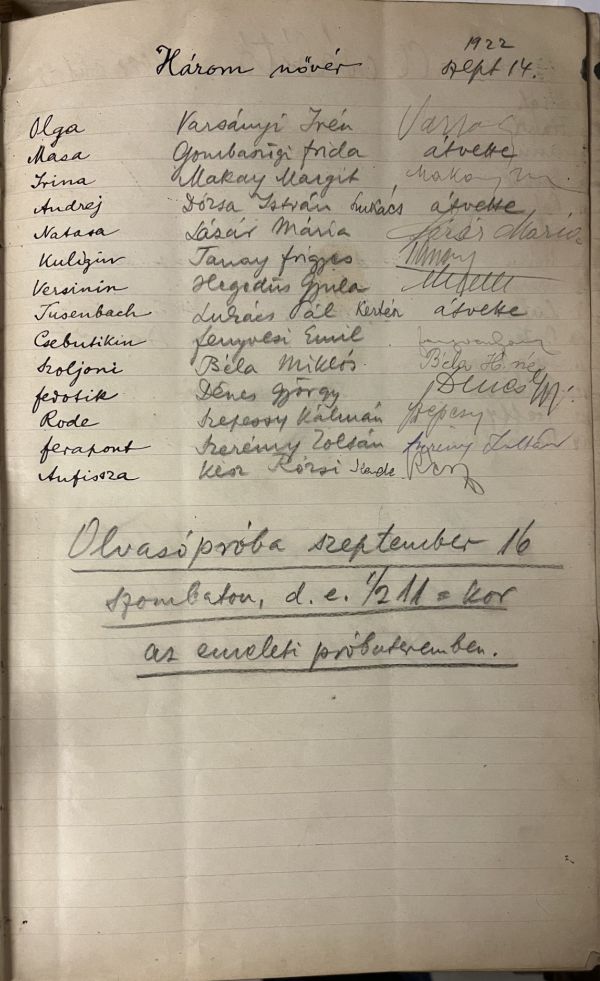 1922
Három nővér szept 14.
Olga Varsányi Irén
Masa Gombaszögi Frida átvette
Irina Makay Margit Makay M.
Andrej Dózsa István Lukács átvette
Natasa Lázár Mária Lázár Mária
Kuligin Tanay Frigyes Tanay
Versinin Hegedűs Gyula
Tusenbach Lukács Pál Kertész átvette
Csebutikin Fenyvesi Emil
Szoljoni Béla Miklós Béla
Fedotik Dénes György Dénes Gy.
Rode Szepessy Kálmán Szepessy
Ferapont Szerémy Zoltán Szerémy Zoltán
Anfissza Kész Rózsi
Olvasópróba szeptember 16
szombaton, d. e. 1/2 11 = kor
az emeleti próbateremben.